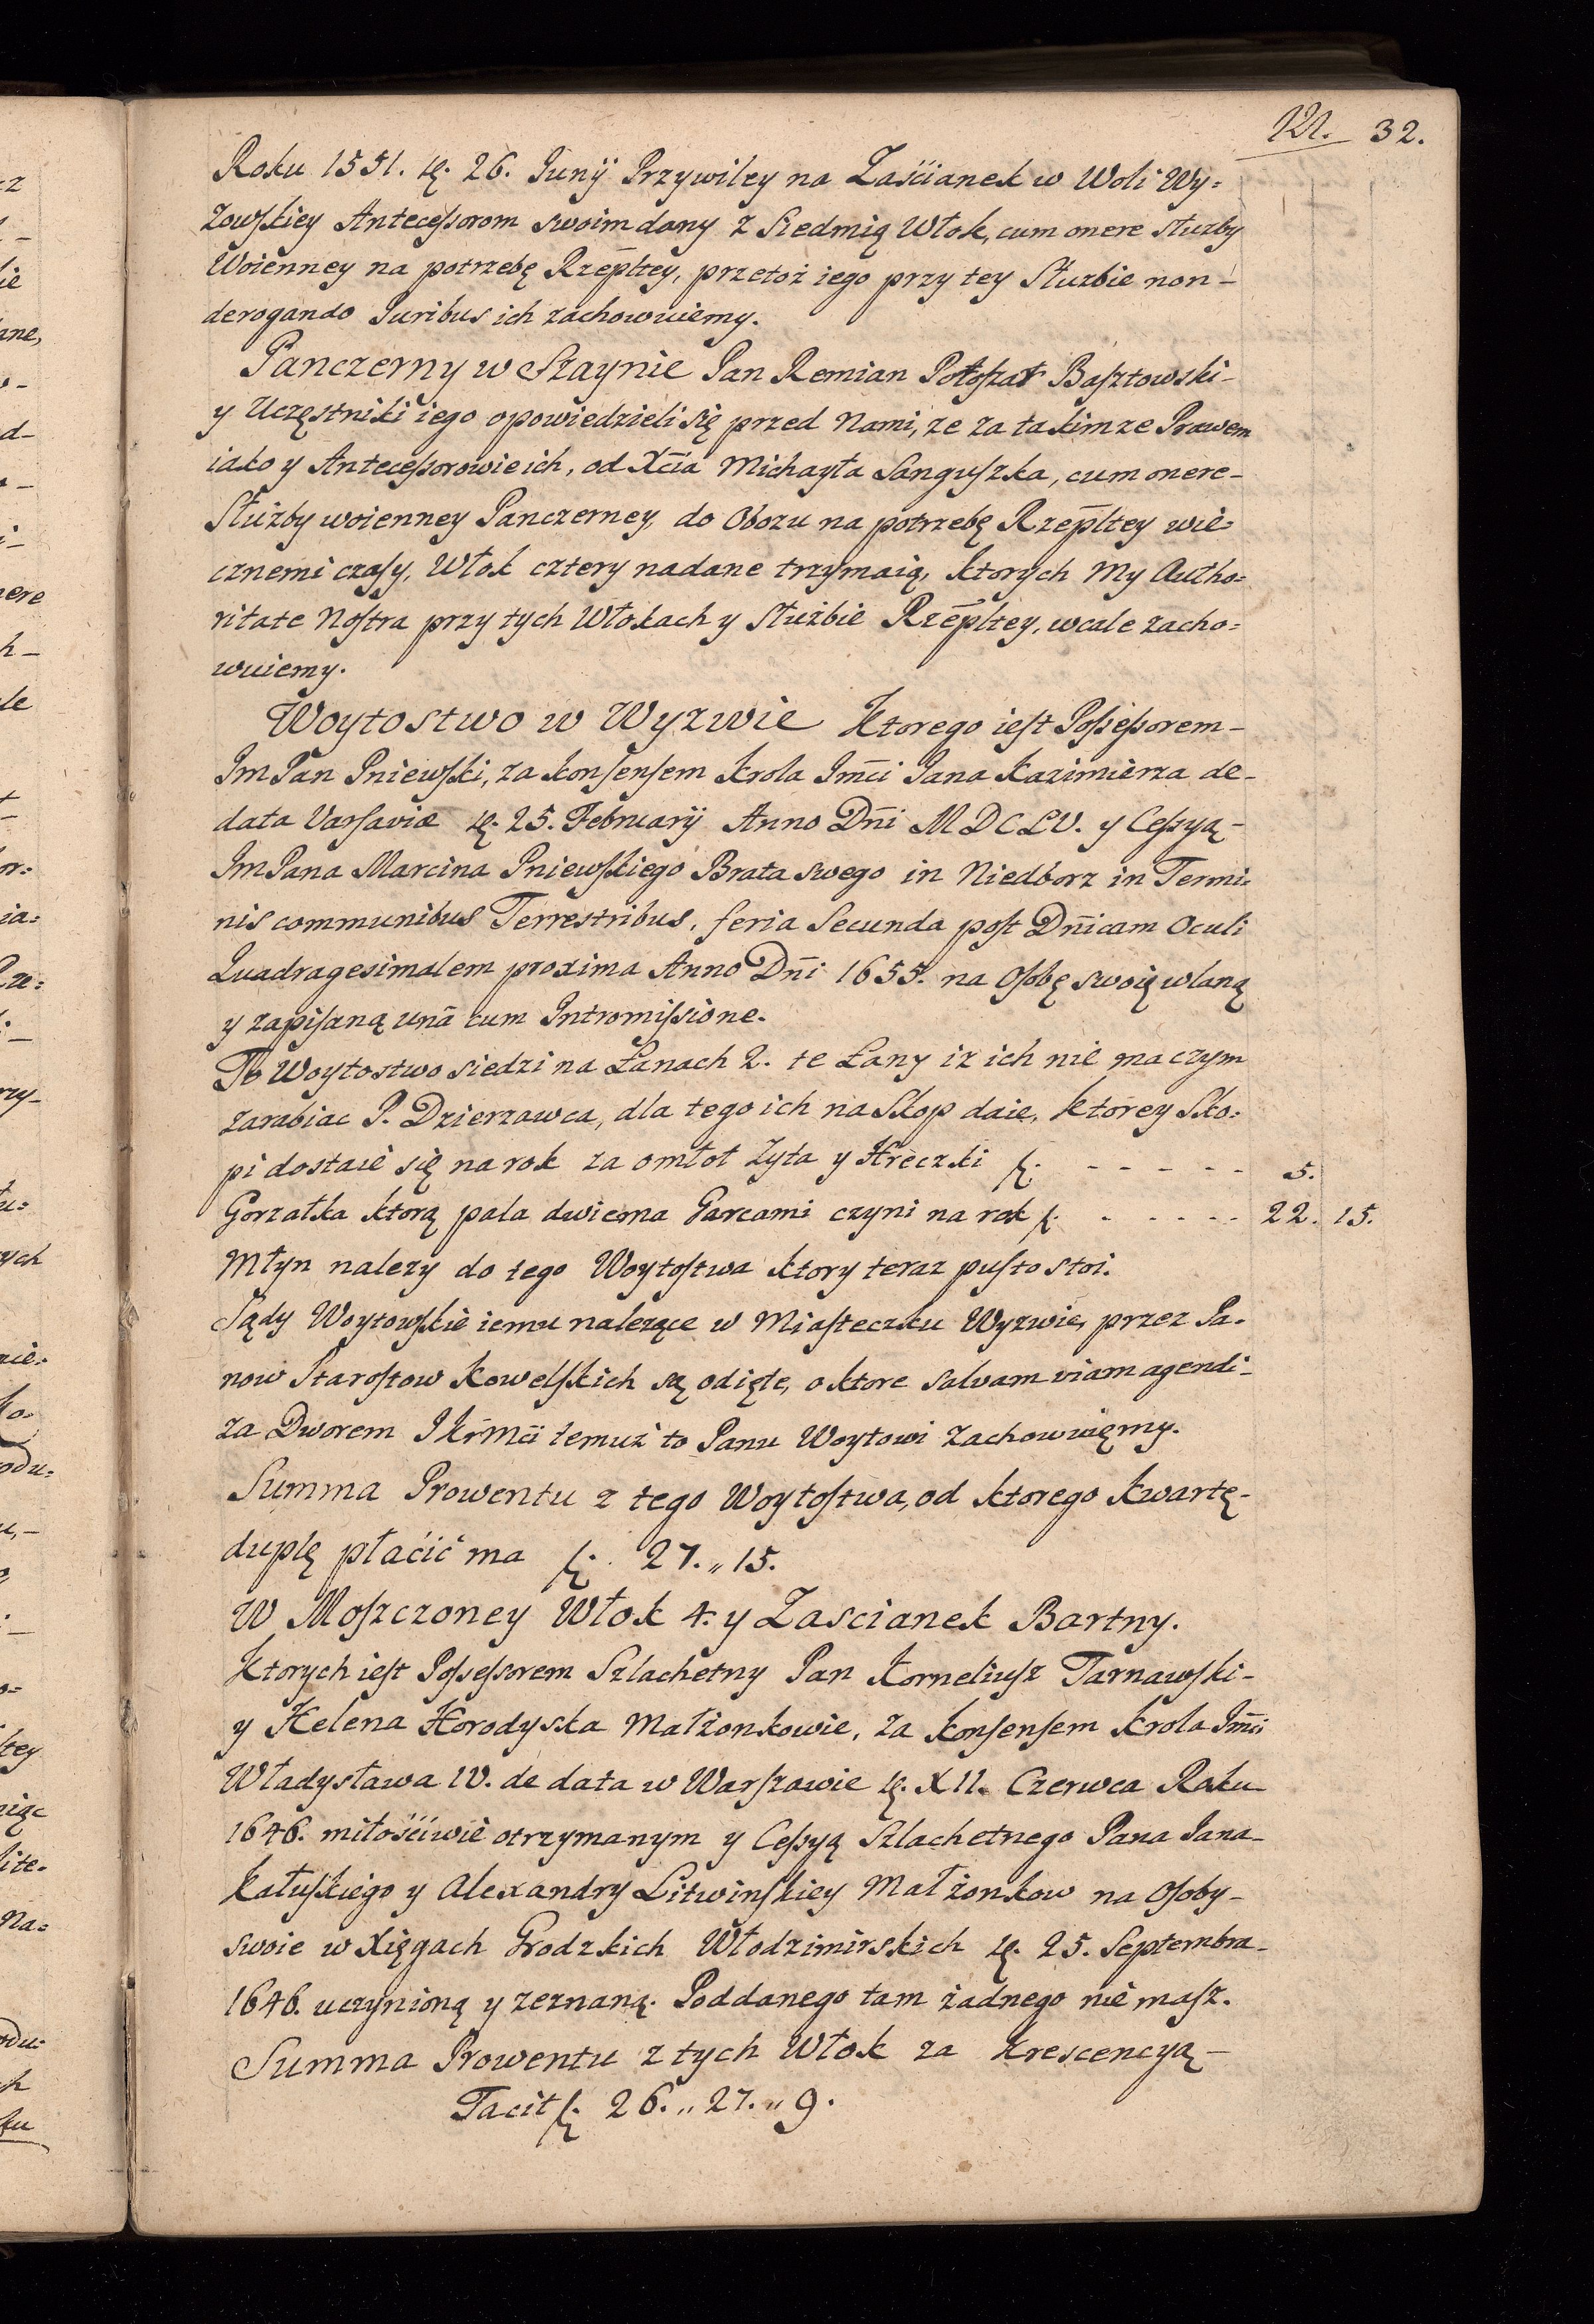 121. 32.
Roku 1551. d. 26. Junij Przywiley na Zaścianek w Woli Wy=
zowskiey Antecessorom swoim dany z Siedmią Włok, cum onere służby
Woienney na potrzebę Rzepltey, przetoż iego przy tey Służbie non-
derogando Juribus ich zachowuiemy.
Panczerny w Szaynie Pan Remian Połoszat Basztowski-
y Uczęstniki iego opowiedzieli się przed Nami, ze za takimze Prawem
iako y Antecessorowie ich, od Xcia Michayła Sanguszka, cum onere-
Służby woienney Panczerney, do Obozu na potrzebę Rzepltey wie=
cznemi czasy, Włok cztery nadane trzymaią, ktorych My Autho=
ritate Nostra przy tych Włokach y Służbie Rzepltey, wcale zacho=
wuiemy.
Woytostwo w Wyzwie Ktorego iest Possessorem-
Jm Pan Pniewski, za konsensem Krola Jmci Jana Kazimierza de-
data Varsaviæ d. 25. Februarij Anno Dni MDCLV. y Cessyą-
Jm Pana Marcina Pniewskiego Brata swego in Niedborz in Termi=
nis communibus Terrestribus, feria Secunda post Dnicam Oculi
Quadragesimalem proxima Anno Dni 1655. na Osobę swoię wlaną
y zapisaną unā cum Intromissione.
To Woytostwo siedzi na Łanach 2. te Łany iz ich nie ma czym
zarabiac P. Dzierzawca, dla tego ich na Skop daie, ktorey Sko=
pi dostaie się na rok za omłot Zyta y Hreczki f. - - - - - 5.
Gorzałka ktorą pala dwiema Garcami czyni na rok f. - - - - - 22. 15.
Młyn nalezy do tego Woytostwa ktory teraz pusto stoi.
Sądy Woytowskie iemu nalezące w Miasteczku Wyzwie, przez Pa=
now Starostow Kowelskich są odięte, o ktore salvam viam agendi-
za Dworem JKrMci temuż to Panu Woytowi zachowuięmy.
Summa Prowentu z tego Woytostwa, od ktorego kwartę-
duplę płaćić ma f. 27. „ 15.
W Moszczoney Włok 4. y Zascianek Bartny.
Ktorych iest Possessorem Szlachetny Pan Korneliusz Tarnawski-
y Helena Horodyska Małżonkowie, za konsensem Krola Jmci
Władysława IV. de data w Warszawie d. XII. Czerwca Roku
1646. miłościwie otrzymanym y Cessyą Szlachetnego Pana Jana-
Kałuskiego y Alexandry Litwinskiey Małżonkow na Osoby-
swoie w Xięgach Grodzkich Włodzimirskich d. 25. Septembra-
1646. uczynioną y zeznaną. Poddanego tam żadnego nie masz.
Summa Prowentu z tych Włok za Krescencyą-
Facit f. 26. „ 27. „ 9.